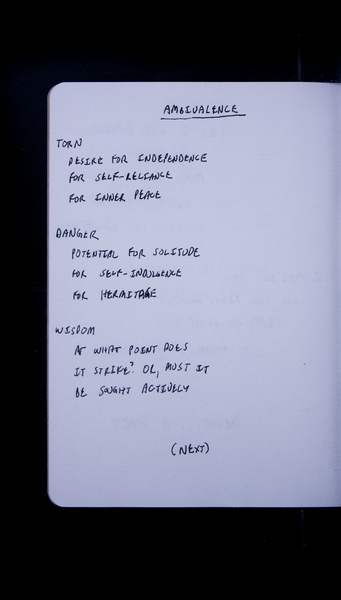 AMBIVALENCE
TORN
DESIRE FOR INDEPENDENCE
FOR SELF-RELIANCE
FOR INNER PEACE
DANGER
POTENTIAL FOR SOLITUDE
FOR SELF-INDULGENCE
FOR HERMITAGE
WISDOM
AT WHAT POINT DOES
IT STRIKE? OR, MUST IT
BE SOUGHT ACTIVELY
(NEXT)